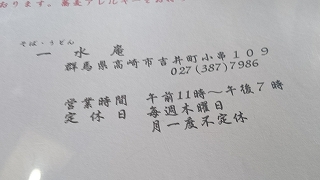 おります。蕎麦アレルギーをお持
そば・うどん
一水庵
群馬県高崎市吉井町小串109
027(387)7986
営業時間 午前11時～午後7時
定休日 毎週木曜日
月一度不定休